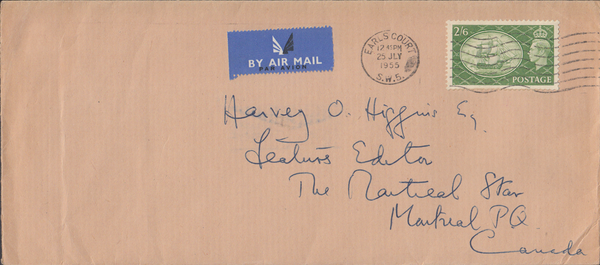 BY AIR MAIL
PAR AVION
EARLS COURT
12 PM
25 JLY
1955
S.W.5.
2/6
POSTAGE
Harvey O. Higgins Esq
Features Editor
The Montreal Star
Montreal PQ
Canada